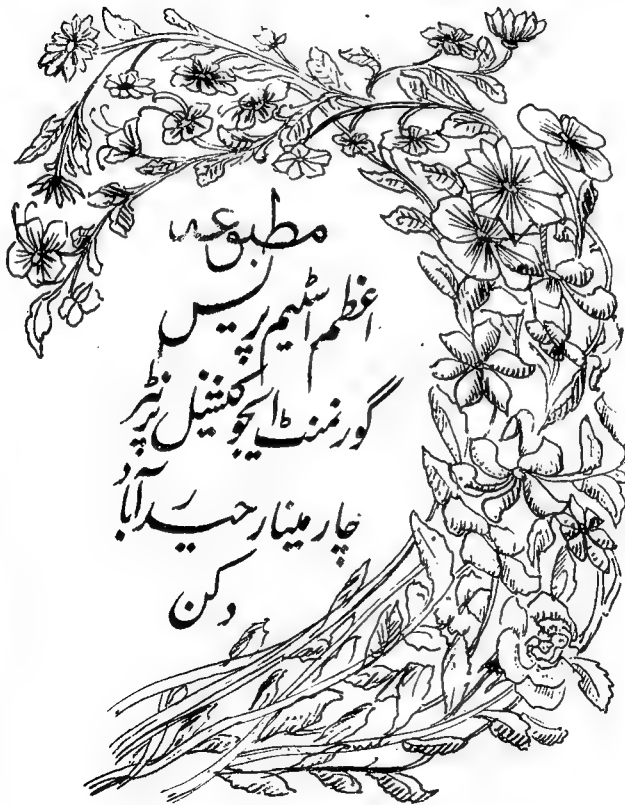 مطبوعہ
اعظم اسٹیم پریس
گورنمنٹ ایجوکیشنل پرنٹر
چار مینار حیدرآباد
دکن